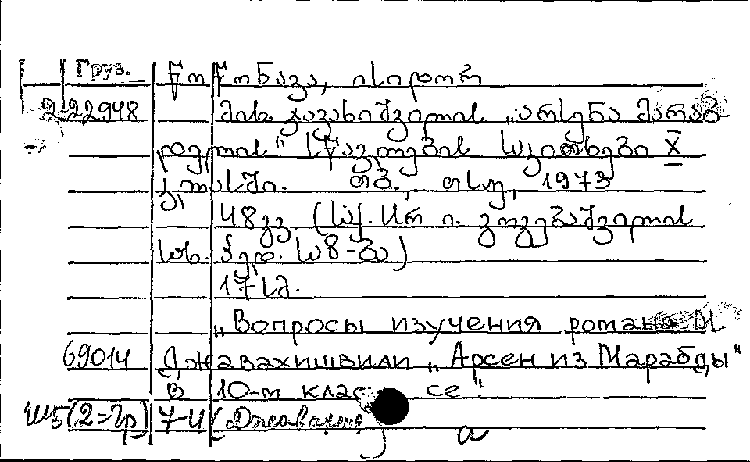 Груз. წოწონავა, ისიდორ
222948 მიხ. ჯავახიშვილის „არსენა მარაბ
დელის“ სწავლების საკითხები X
კლასში. თბ., თსუ, 1973
48გვ. (სსრ ი. გოგებაშვილის
სახ. პედ.
17სმ.
„Вопросы изучения романа М
69014 Джавахишвили „Арсен из Марабды“
в 10-м клас се".
Ш5(2=Гр) 7-4(Джавахиш